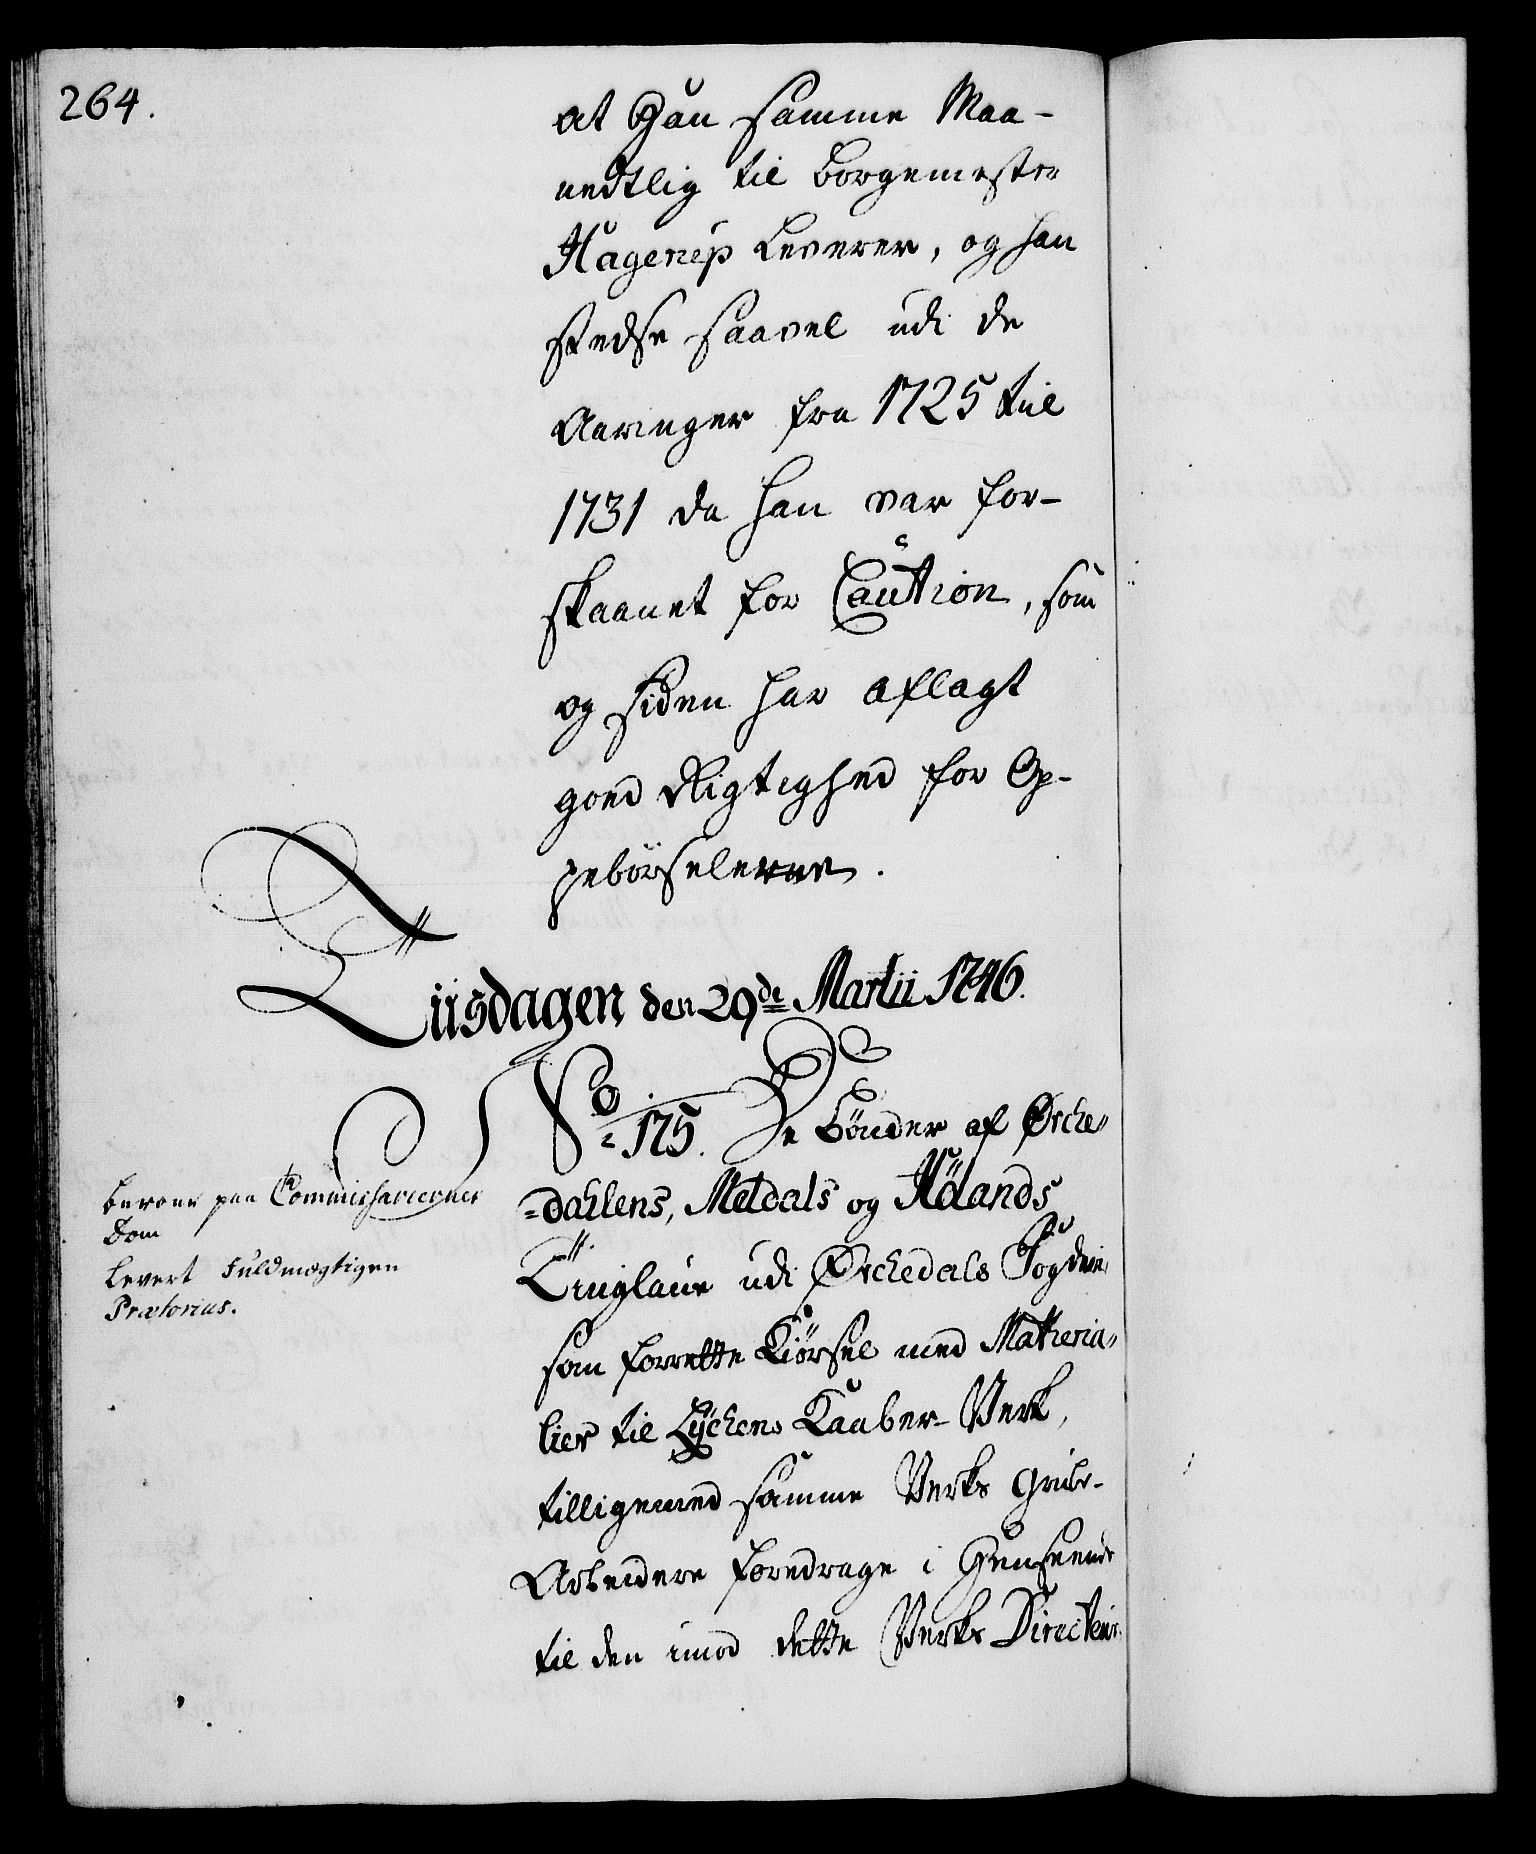 264.
at Han samme Maa-
nedtlig til Borgemester
Hagerup Leverer, og han
stedse saavel udi de
Aaringer fra 1725 til
1731 da han var for-
skaanet for Caution, som
og siden har aflagt
goed Rigtighed for Op-
pebörselerne.
Tiisdagen den 29de Martii 1746.
No 175. De Bönder af Ørche-
-dahlens, Meldals og
Tinglaue udi Ørchedals Fogderie
som forrette Kiörsel med Materia-
lier til Lychens Kaaber-Verk,
tilligemed samme Verks Grube-
Arbeidere foredrage i Henseende
til den imod dette Verks Directeur
beroer paa Commissariernes
Dom
Levert Fuldmægtigen
Prætorius.